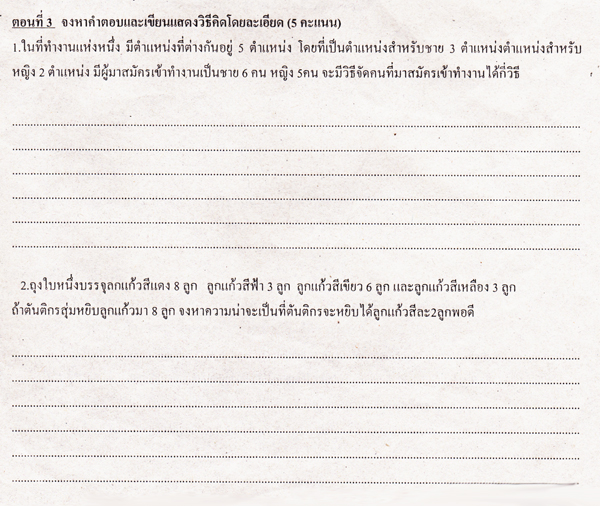 ตอนที่ 3 จงหาคำตอบและเขียนแสดงวิธีคิดโดยละเอียด (5 คะแนน)
1.ในที่ทำงานแห่งหนึ่ง มีตำแหน่งที่ต่างกันอยู่ 5 ตำแหน่ง โดยที่เป็นตำแหน่งสำหรับชาย 3 ตำแหน่งตำแหน่งสำหรับ
หญิง 2 ตำแหน่ง มีผู้มาสมัครเข้าทำงานเป็นชาย 6 คน หญิง 5คน จะมีวิธีจัดคนที่มาสมัครเข้าทำงานได้กี่วิธี
2.ถุงใบหนึ่งบรรจุลกแก้วสีแดง 8 ลูก ลูกแก้วสีฟ้า 3 ลูก ลูกแก้วสีเขียว 6 ลูก และลูกแก้วสีเหลือง 3 ลูก
ถ้าตันติกรสุ่มหยิบลูกแก้วมา 8 ลูก จงหาความน่าจะเป็นที่ตันติกรจะหยิบได้ลูกแก้วสีละ2ลูกพอดี